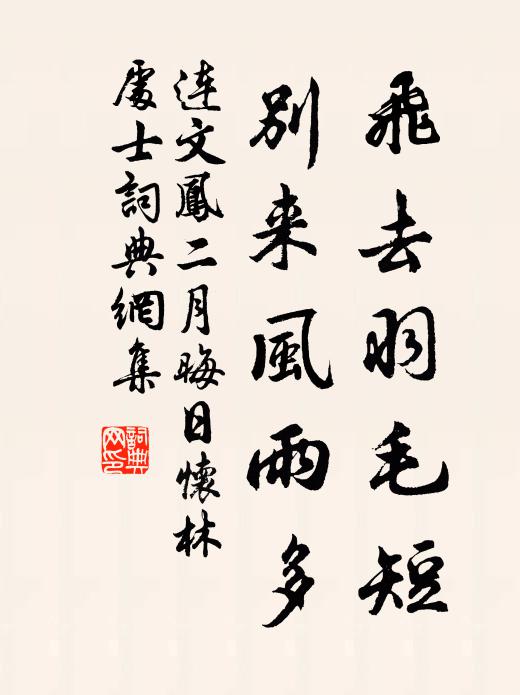 飛去羽毛短
別来風雨多
連文鳳二月晦日懷林
處士詞典網集
詞典網印